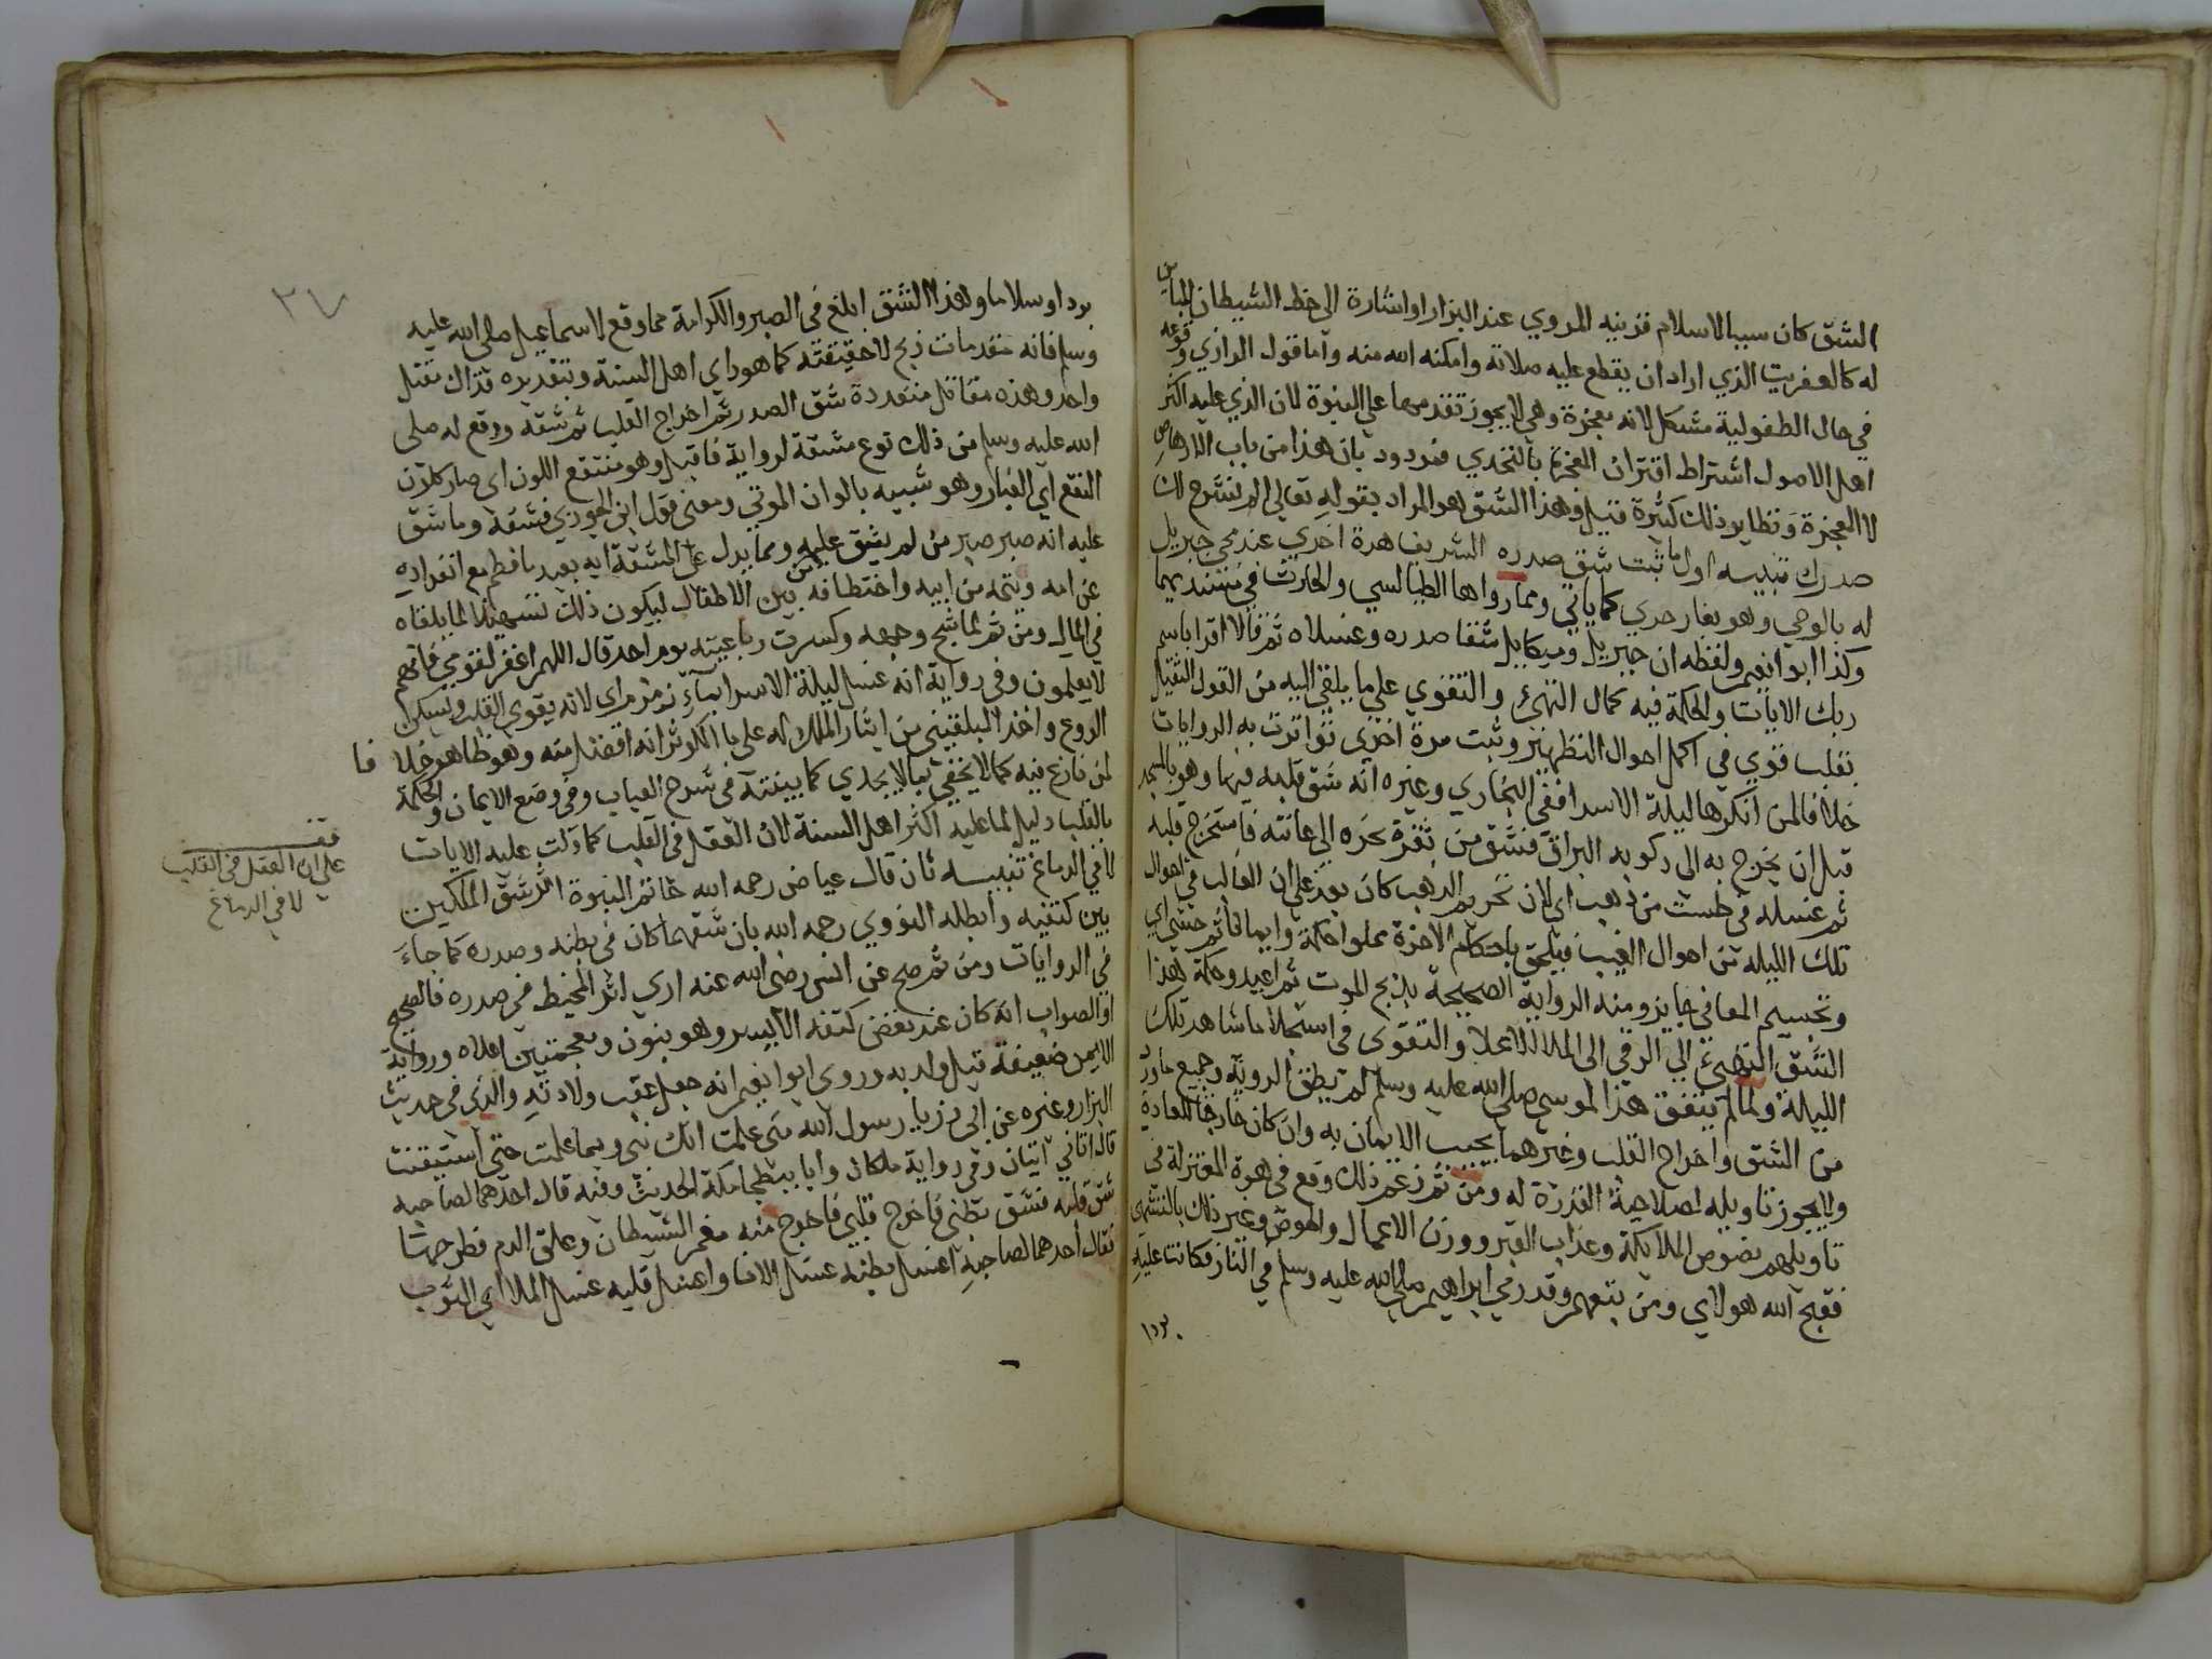 الشق كان سببا لاسلام قرينه المروي عند البزار او اشارة الى حظ الشيطان المباين
له كالعفريت الذي اراد ان يقطع عليه صلاته وامكنه الله منه واما قول الرازي وقوعه
في حال الطفولية مشكل لانه معجزة وهي لا يجوز تقدمها على النبوة لان الذي عليه اكثر
اهل الاصول اشتراط اقتران المعجزة بالتحدي فمردود بان هذا من باب الارهاص
لا المعجزة ونظاير ذلك كثيرة قيل وهذا الشق هو المراد بقوله تعالى الم نشرح لك
صدرك تنبيه اول ما ثبت شق صدره الشريف مرة اخرى عند مجي جبريل
له بالوحي وهو بغار حرى كما ياتي ومما رواها الطيالسي والحارث في مسنديهما
وكذا ابو نعيم ولفظه ان جبريل وميكايل شقا صدره وغسلاه ثم قالا اقرا باسم
ربك الايات والحكمة فيه كمال التهيئ والتقوي على ما يلقى اليه من القول الثقيل
بقلب قوي في اكمل احوال التطهير وثبت مرة اخرى تواترت به الروايات
خلافا لمن انكرها ليلة الاسرا ففي البخاري وغيره انه شق قلبه فيها وهو بالمسجد
قبل ان يخرج به الى ركوبه البراق فشق من ثغرة نحره الى عانته فاستخرج قلبه
ثم غسله في طست من ذهب اي لان تحريم الذهب كان بعد على ان الغالب في احوال
تلك الليله من احوال الغيب فيلحق باحكام الاخرة مملوا حكمة وايمانا ثم حشي اي
وتجسيم المعاني جايز ومنه الرواية الصحيحة بذبح الموت ثم اعيد وحكمة هذا
الشق التهيئ الى الرقي الى الملا الاعلا والتقوى في استجلا ما شاهد تلك
الليلة ولما لم يتفق هذا لموسى صلى الله عليه وسلم لم يطق الروية وجميع ما ورد
من الشق واخراج القلب وغيرهما يجب الايمان به وان كان خارجا للعادة
ولا يجوز تاويله لصلاحية القدرة له ومن ثم زعم ذلك وقع في هوة المعتزلة في
تاويلهم نصوص الملايكة وعذاب القبر ووزن الاعمال والحوض وغير ذلك بالتشهي
فقبح الله هولاي ومن تبعهم وقد رمي ابراهيم صلى الله عليه وسلم في النار فكانت عليه
بردا
٢٧
بردا وسلاما وهذا الشق ابلغ في الصبر والكرامة مما وقع لاسماعيل صلى الله عليه
وسلم فانه مقدمات ذبح لا حقيقته كما هو راي اهل السنة وبتقديره فذاك مقتل
واحد وهذه مقاتل متعددة شق الصدر ثم اخراج القلب ثم شقه ووقع له صلى
الله عليه وسلم من ذلك نوع مشقة لرواية فاقبل وهو منتقع اللون اي صار كلون
النقع اي الغبار وهو شبيه بالوان الموتى ومعنى قول ابن الجوزي فشقه وما شق
عليه انه صبر صبر من لم يشق عليه ومما يدل على المشقة انه بعيد ما فطم مع انفراده
عن امه ويتمه من ابيه واختطافه من بين الاطفال ليكون ذلك تسهيلا لما يلقاه
في المال ومن ثم لما شج وجهه وكسرت رباعيته يوم احد قال اللهم اغفر لقومي فانهم
لا يعلمون وفي رواية انه غسل ليلة الاسرا بماء زمزم اي لانه يقوي القلب ويسكن
الروع واخذ البلقيني من ايثار الملك له على ما الكوثر انه افضل منه وهو ظاهر خلا
فا
لمن نازع فيه كما لا يخفى بما لا يجدي كما بينته في شرح العباب وفي وضع الايمان والحكمة
بالقلب دليل لما عليه اكثر اهل السنة لان العقل في القلب كما دلت عليه الايات
لا في الدماغ تنبيه ثان قال عياض رحمه الله خاتم النبوة اثر شق الملكين
بين كتفيه وابطله النووي رحمه الله بان شقهما كان في بطنه وصدره كما جاء
في الروايات ومن ثم صح عن انس رضي الله عنه ارى اثر المخيط في صدره فالصحيح
او الصواب انه كان عند نغض كتفه الايسر وهو بنون ومعجمتين اعلاه ورواية
الايمن ضعيفة قيل ولد به وروى ابو نعيم انه جعل عقب ولادته والذي في حديث
البزار وغيره عن ابي ذر يا رسول الله متى علمت انك نبي وبما علمت حتى استيقنت
قال اتاني اتيان وفي رواية ملكان وانا ببطحا مكة الحديث وفيه قال احدهما لصاحبه
شق قلبه فشق بطني فاخرج قلبي فاخرج منه مغمز الشيطان وعلق الدم فطرحهما
فقال احدهما لصاحبه اغسل بطنه غسل الانا واغسل قلبه غسل الملا اي الثوب
قف
على ان العقل في القلب
لا في الدماغ